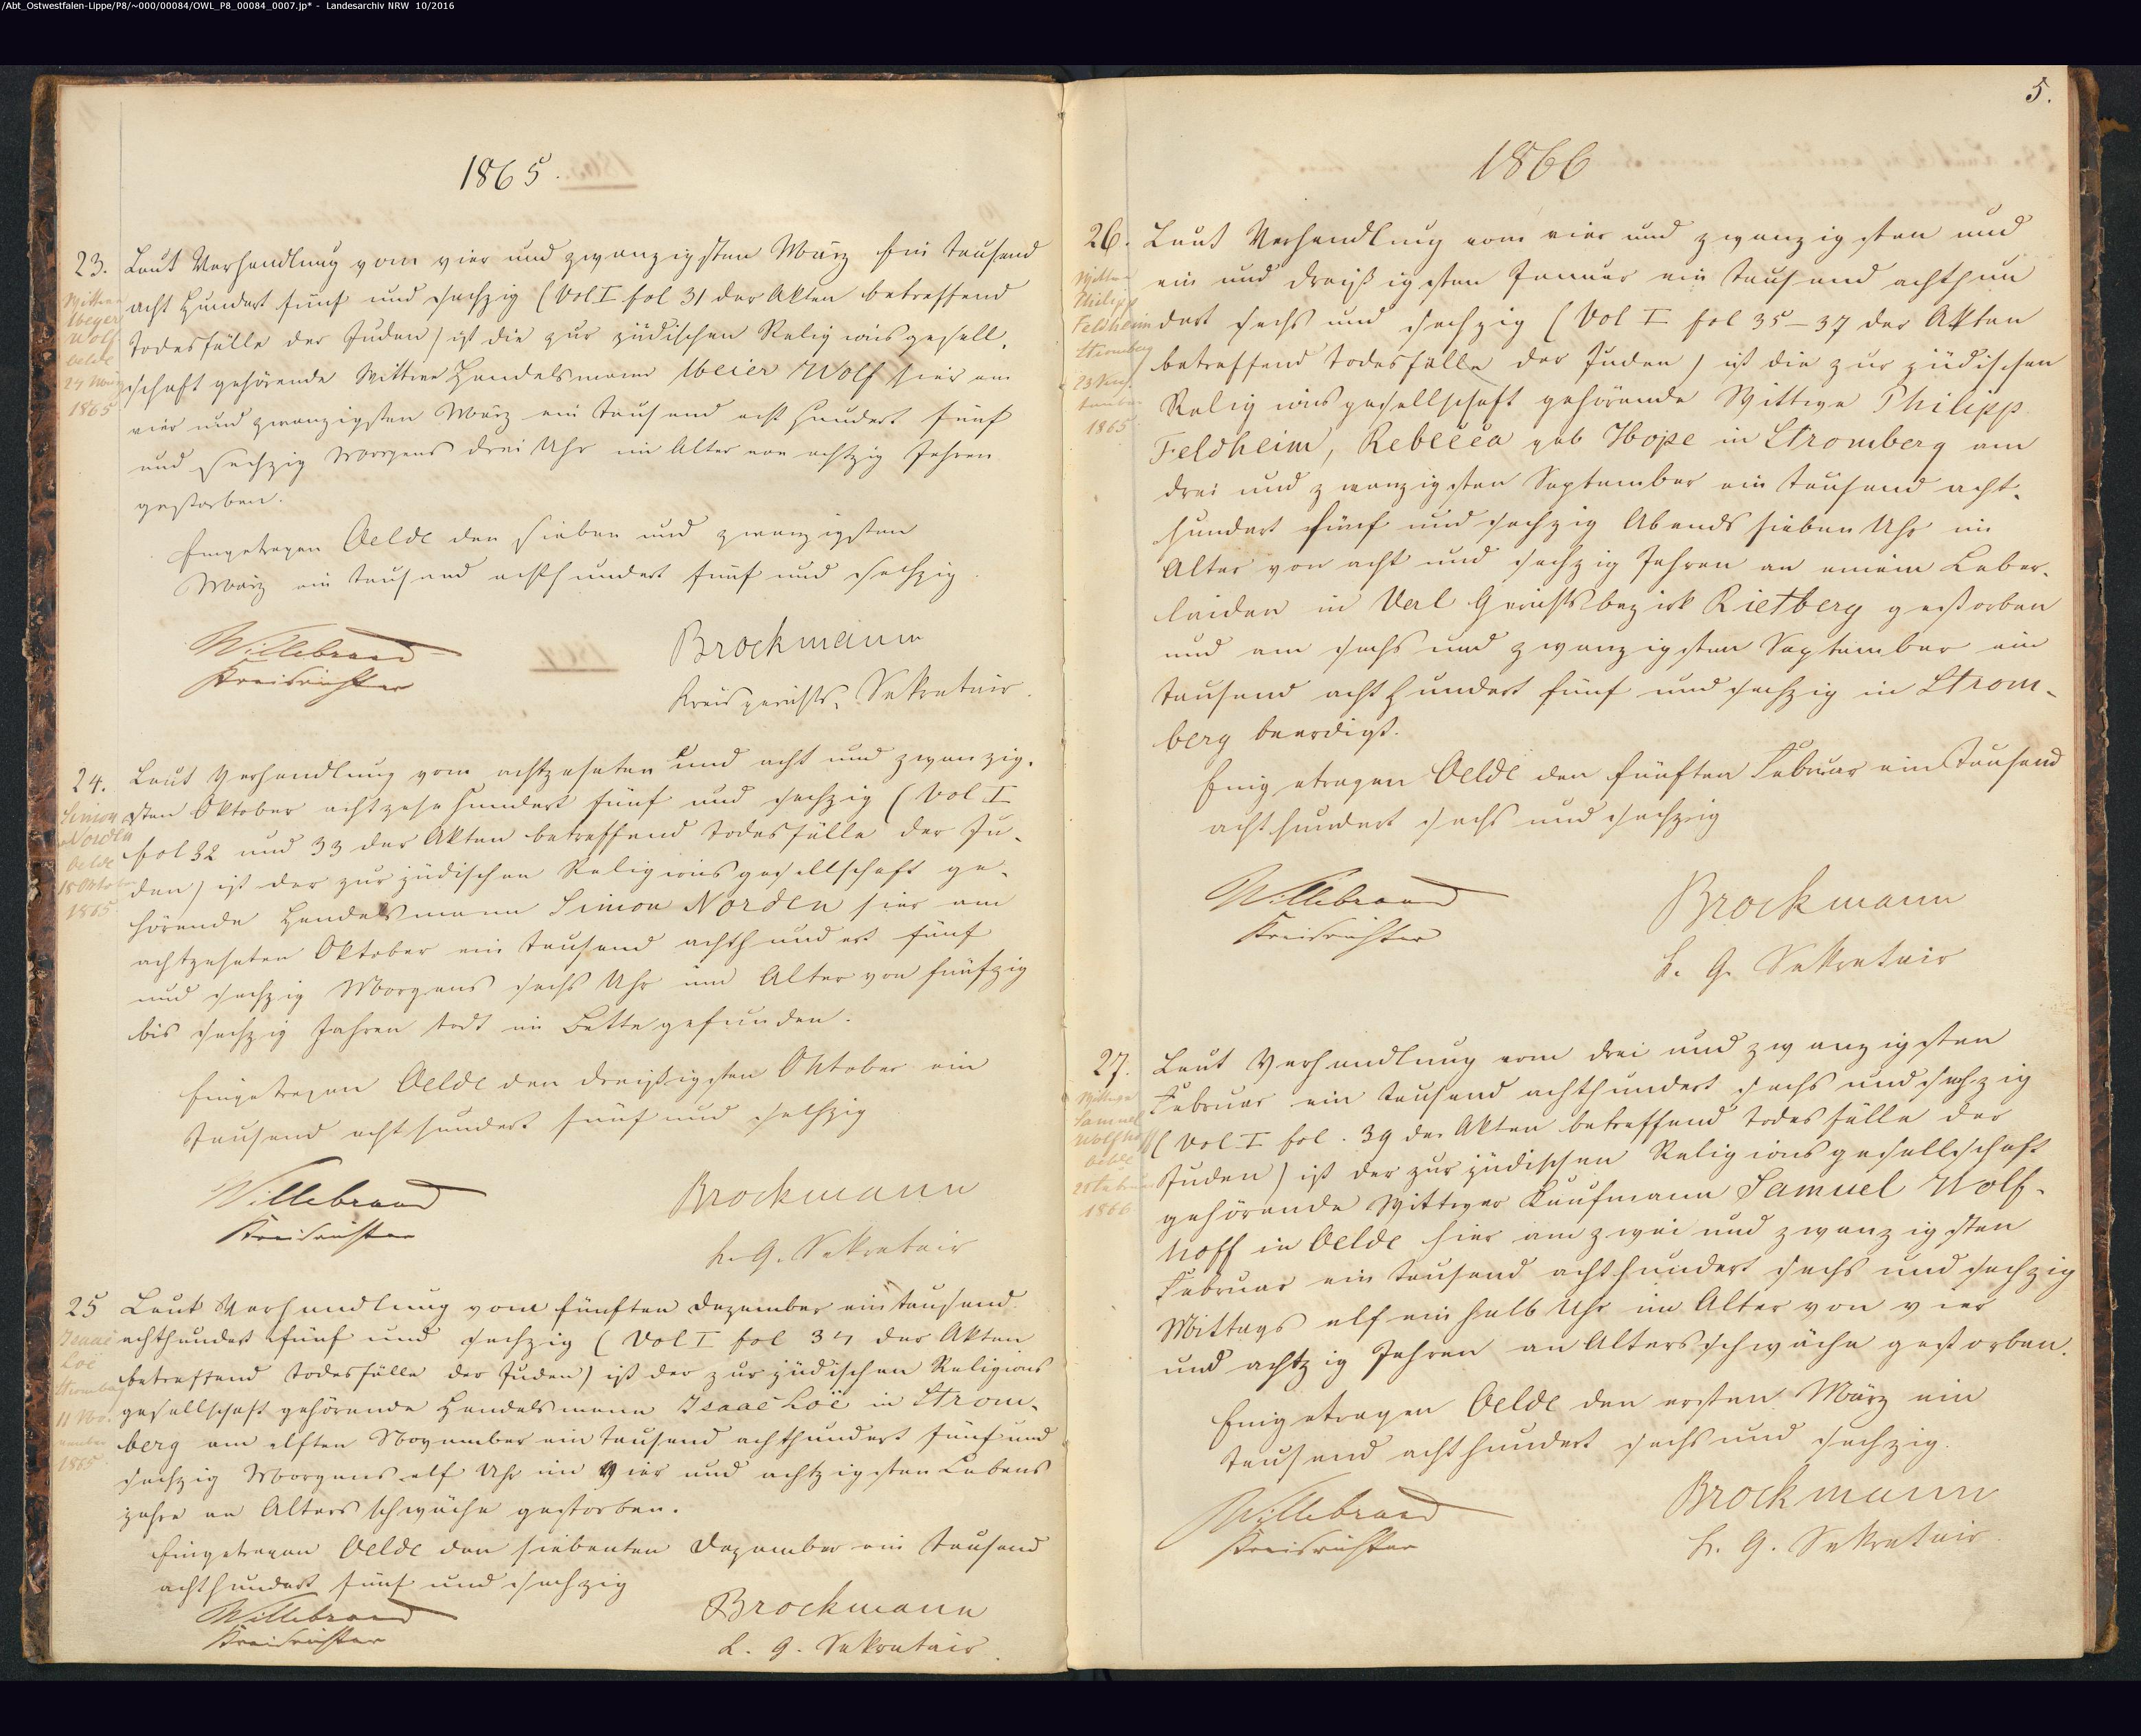 /Abt_Ostwestfalen-Lippe/P8/~000/00084/OWL_P8_00084_0007.jp* - Landesarchiv NRW 10/2016
1865.
23. Laut Verhandlung vom vier und zwanzigsten März ein tausend
acht hundert fünf und sechzig (Vol I fol 31 der Akten betreffend
Todesfälle der Juden) ist die zur jüdischen Religionsgesell-
schaft gehörende Wittwe Handelsmann Meier Wolf hier am
vier und zwanzigsten März ein tausend acht hundert fünf
und sechzig Morgens drei Uhr im Alter von achtzig Jahren
gestorben.
Wittwe
Meyer
Wolf
Oelde
24 März
1865
Eingetragen Oelde den sieben und zwanzigsten
März ein tausend achthundert fünf und sechzig
Willebrand
Kreisrichter
Brockmann
Kreisgerichts-Sekretair.
24. Laut Verhandlung vom achtzehnten und acht und zwanzig-
sten Oktober achtzehnhundert fünf und sechzig (Vol I
fol 32 und 33 der Akten betreffend Todesfälle der Ju-
den) ist der zur jüdischen Religionsgesellschaft ge-
hörende Handelsmann Simon Norden hier am
achtzehnten Oktober ein tausend achthundert fünf
und sechzig Morgens sechs Uhr im Alter von fünfzig
bis sechzig Jahren todt im Bette gefunden.
Simon
Norden
Oelde
18 Oktober
1865.
Eingetragen Oelde den dreißigsten Oktober ein
tausend acht hundert fünf und sechzig
Willebrand
Kreisrichter
Brockmann
K. G. Sekretair
25 Laut Verhandlung vom fünften Dezember ein tausend
achthundert fünf und sechzig (Vol I fol 34 der Akten
betreffend Todesfälle der Juden) ist der zur jüdischen Religions
gesellschaft gehörende Handelsmann Isaac Loë in Strom-
berg am elften November ein tausend achthundert fünf und
sechzig Morgens elf Uhr im vier und achtzigsten Lebens
jahre an Altersschwäche gestorben.
Isaac
Loë
Stromberg
11 No-
vember
1865.
Eingetragen Oelde den siebenten Dezember ein tausend
achthundert fünf und sechzig
Willebrand
Kreisrichter
Brockmann
K. G. Sekretair.
5.
1866
26. Laut Verhandlung vom vier und zwanzigsten und
ein und dreißigsten Januar ein tausend achthun
dert sechs und sechzig (Vol I fol 35-37 der Akten
betreffend Todesfälle der Juden) ist die zur jüdischen
Religionsgesellschaft gehörende Wittwe Philipp
Feldheim, Rebecca geb Hope in Stromberg am
drei und zwanzigsten September ein tausend acht-
hundert fünf und sechzig Abends sieben Uhr im
Alter von acht und sechzig Jahren an einem Leber-
leiden in Verl Gerichtsbezirk Rietberg gestorben
und am sechs und zwanzigsten September ein
tausend acht hundert fünf und sechzig in Strom-
berg beerdigt.
Wittwe
Philipp
Feldheim
Stromberg
1865
Eingetragen Oelde den fünften Februar ein tausend
acht hundert sechs und sechzig
Willebrand
Kreisrichter
Brockmann
K. G. Sekretair
27. Laut Verhandlung vom drei und zwanzigsten
Februar ein tausend achthundert sechs und sechzig
(Vol I fol. 39 der Akten betreffend Todesfälle der
Juden) ist der zur jüdischen Religionsgesellschaft
gehörende Wittwer Kaufmann Samuel Wolf-
hoff in Oelde hier am zwei und zwanzigsten
Februar ein tausend achthundert sechs und sechzig
Mittags elf ein halb Uhr im Alter von vier
und achtzig Jahren an Altersschwäche gestorben.
Wittwer
Samuel
Wolfhoff
Oelde
1866
Eingetragen Oelde den ersten März ein
tausend acht hundert sechs und sechzig.
Willebrand
Kreisrichter
Brockmann
K. G. Sekretair